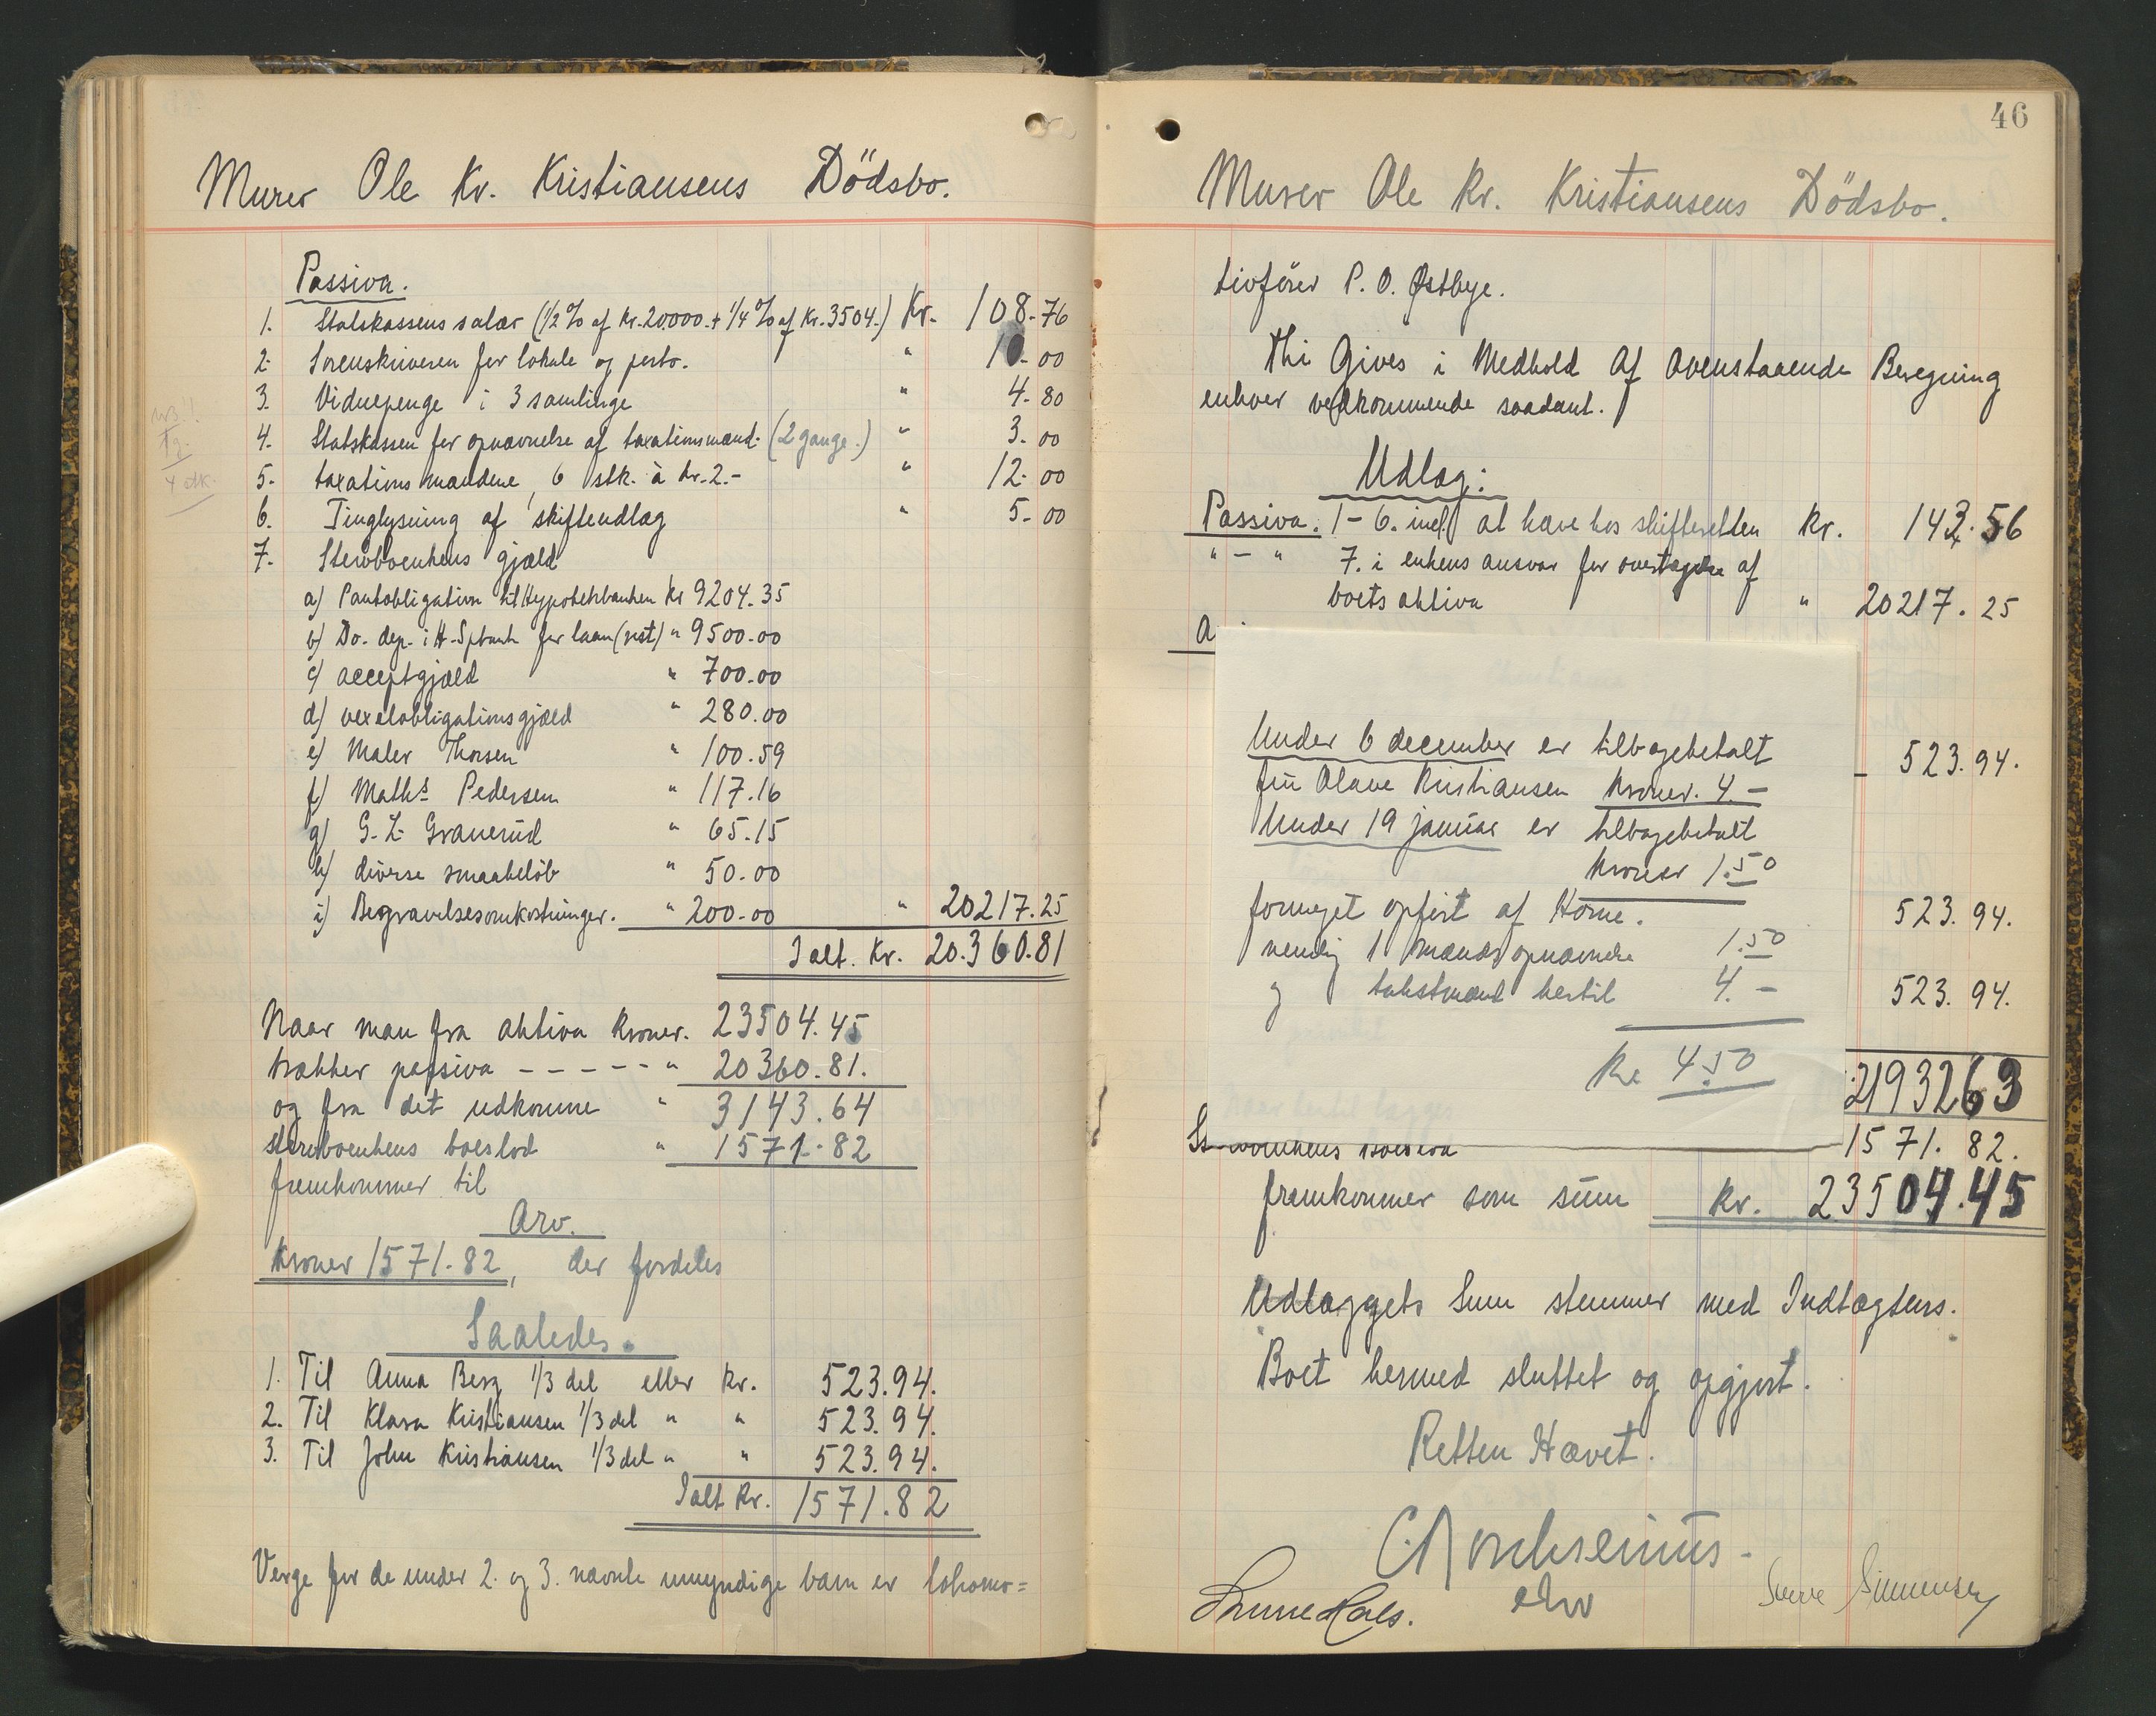 Murer Ole Kr. Kristiansens Dödsbo.
Passiva.
1. Statskassens salær (1/2 % af Kr. 20,000. + 1/4 % af Kr. 3504.) Kr. 108.76
2. Sorenskriveren for lokale og porto. " 10.00
3. Vidnepenge i 3 samlinge " 4.80
4. Statskassen for opnævnelse af taxationsmænd. (2 gange.) " 3.00
5. taxationsmændene, 6 stk. à kr. 2.- " 12.00
6. Tinglysning af skifteudlæg " 5.00
4 stk.
7. Stervboenkens gjæld
a) Pantobligation til Hypotekbanken Kr 9204.35
b) Do. dep. i H. Spbank for laan (rest) " 9500.00
c) acceptgjæld " 700.00
d) vexelobligationsgjæld " 280.00
e) Maler Thorsen " 100.59
f) Maths Pedersen " 117.16
g) G. L. Granerüd " 65.15
h) diverse smaabeløb " 50.00
i) Begravelsesomkostninger. " 200.00 " 20217.25
Ialt. Kr. 20.360.81
Naar man fra aktiva Kroner. 23504.45
trækker passiva - - - - - " 20360.81.
og fra det udkomne " 3143.64
stervboenkens boeslod " 1571.82
fremkommer til
Arv.
Kroner 1571.82, der fordeles
Saaledes.
1. Til Anna Berg 1/3 del eller Kr. 523.94.
2. Til Klara Kristiansen 1/3 del " " 523.94.
3. Til John Kristiansen 1/3 del " " 523.94.
Ialt Kr. 1571.82
Verge for de under 2. og 3. nævnte umyndige barn er lokomo=
46
Murer Ole Kr. Kristiansens Dödsbo.
tivfører P. O. Østbye.
Thi Gives i Medhold Af Ovenstaaende Beregning
enhver vedkommende saadant.
Udlæg:
Passiva. 1-6. incl. at hæve hos skifteretten Kr. 143.56
" - " 7. i enkens ansvar for overtagelse af
boets aktiva " 20217.25
A
Under 6 december er tilbagebetalt
frü Olave Kristiansen Kroner. 4.-
Under 19 janüar er tilbagebetalt
Kroner 1.50
formeget opført af Horne.
nemlig 1 mands opnævnelse 1.50
og takstmand hertil 4.-
Kr 4.50
523.94.
523.94.
523.94.
21932.63
1571.82.
fremkommer som süm Kr. 23504.45
Udlæggets Sum stemmer med Indtægtens.
Boet hermed sluttet og opgjort.
Retten Hævet.